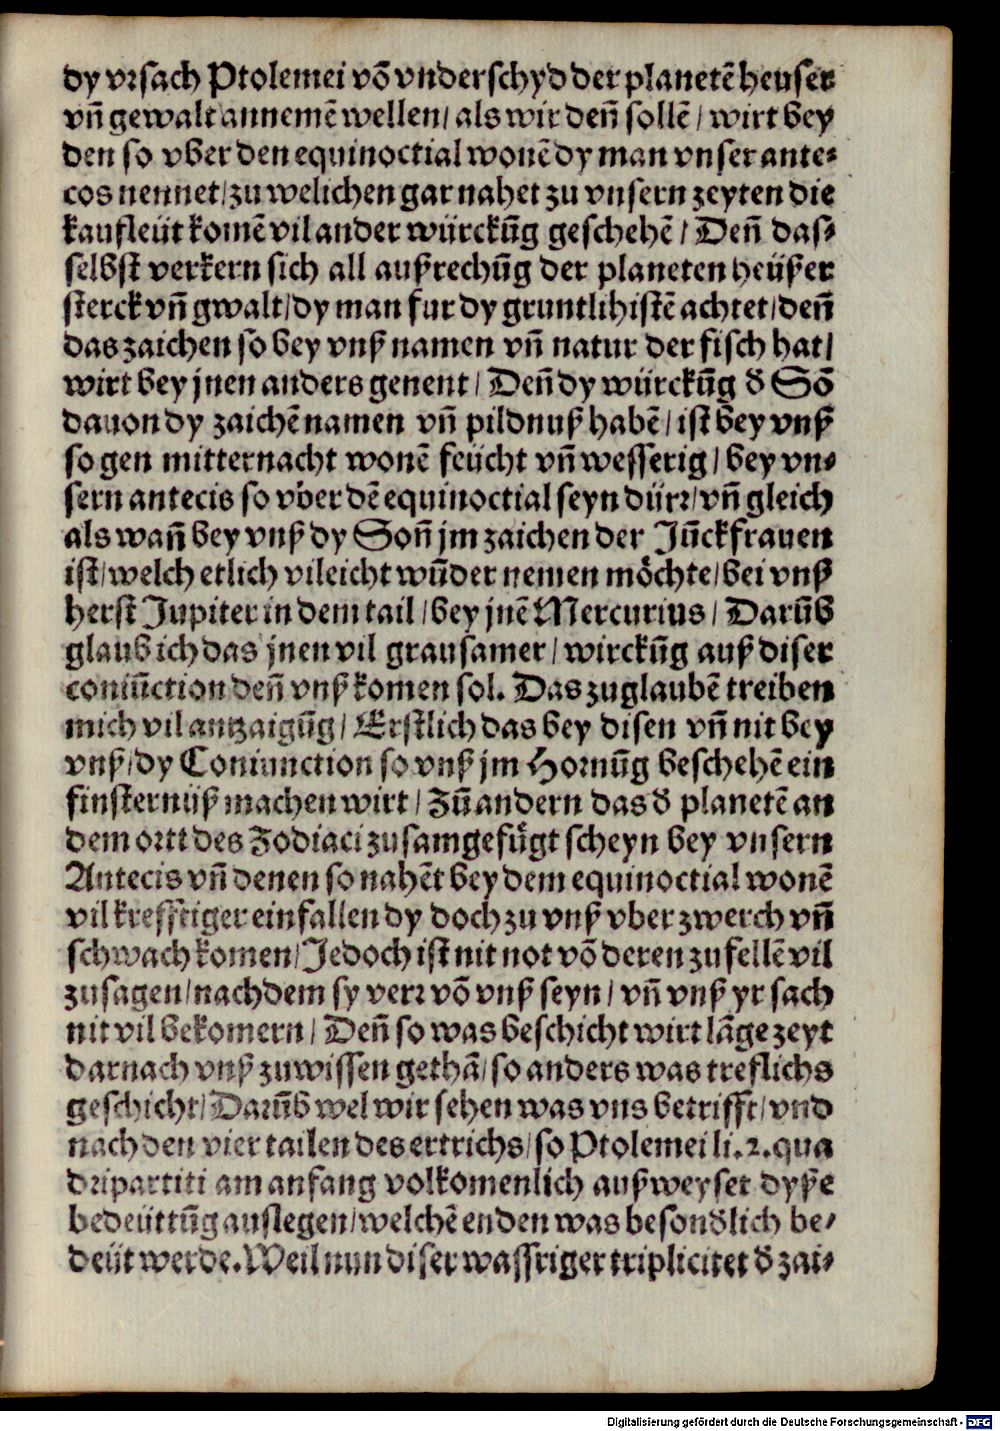 dy vrsach Ptolemei vō vnderschyd der planetē heuser
vn̄ gewalt annemē wellen/ als wir den̄ sollē/ wirt bey
den so vber den equinoctial wonē dy man vnser ante-
cos nennet/ zu welichen gar nahet zu vnsern zeyten die
kaufleüt komē vil ander würckūg geschehē/ Den̄ das-
selbst verkern sich all außrechūg der planeten heüßer
sterck vn̄ gwalt/ dy man fur dy gruntlihistē achtet/ den̄
das zaichen so bey vnß namen vn̄ natur der fisch hat/
wirt bey jnen anders genent/ Den̄ dy würckūg d̕ Sō
dauon dy zaichē namen vn̄ pildnuß habē/ ist bey vnß
so gen mitternacht wonē feücht vn̄ wesserig/ bey vn-
sern antecis so vber dē equinoctial seyn dürr/ vn̄ gleich
als wan̄ bey vnß dy Son̄ jm zaichen der Jūckfrauen
ist/ welch etlich vileicht wūder nemen möchte/ bei vnß
herst Jupiter in dem tail/ bey jnē Mercurius/ Darūb
glaub ich das jnen vil grausamer/ wirckūg auß diser
coniūction den̄ vnß komen sol. Das zuglaubē treiben
mich vil antzaigūg/ Erstlich das bey disen vn̄ nit bey
vnß/ dy Coniunction so vnß jm Hornūg beschehē ein
finsternüß machen wirt/ Zū andern das d̕ planetē an
dem ortt des Zodiaci zusamgefügt scheyn bey vnsern
Antecis vn̄ denen so nahēt bey dem equinoctial wonē
vil krefftiger einfallen dy doch zu vnß vber zwerch vn̄
schwach komen/ Jedoch ist nit not vō deren zufellē vil
zusagen/ nachdem sy verr vō vnß seyn/ vn̄ vnß yr sach
nit vil bekomern/ Den̄ so was beschicht wirt lāge zeyt
darnach vnß zuwissen gethā/ so anders was treflichs
geschicht/ Darūb wel wir sehen was vns betrifft/ vnd
nach den vier tailen des ertrichs/ so Ptolemei li. 2. qua
dripartiti am anfang volkomenlich außweyset dyße
bedeüttūg auslegen/ welchē enden was besond̕lich be-
deüt werde. Weil nun diser wassriger triplicitet d̕ zai-
Digitalisierung gefördert durch die Deutsche Forschungsgemeinschaft - DFG